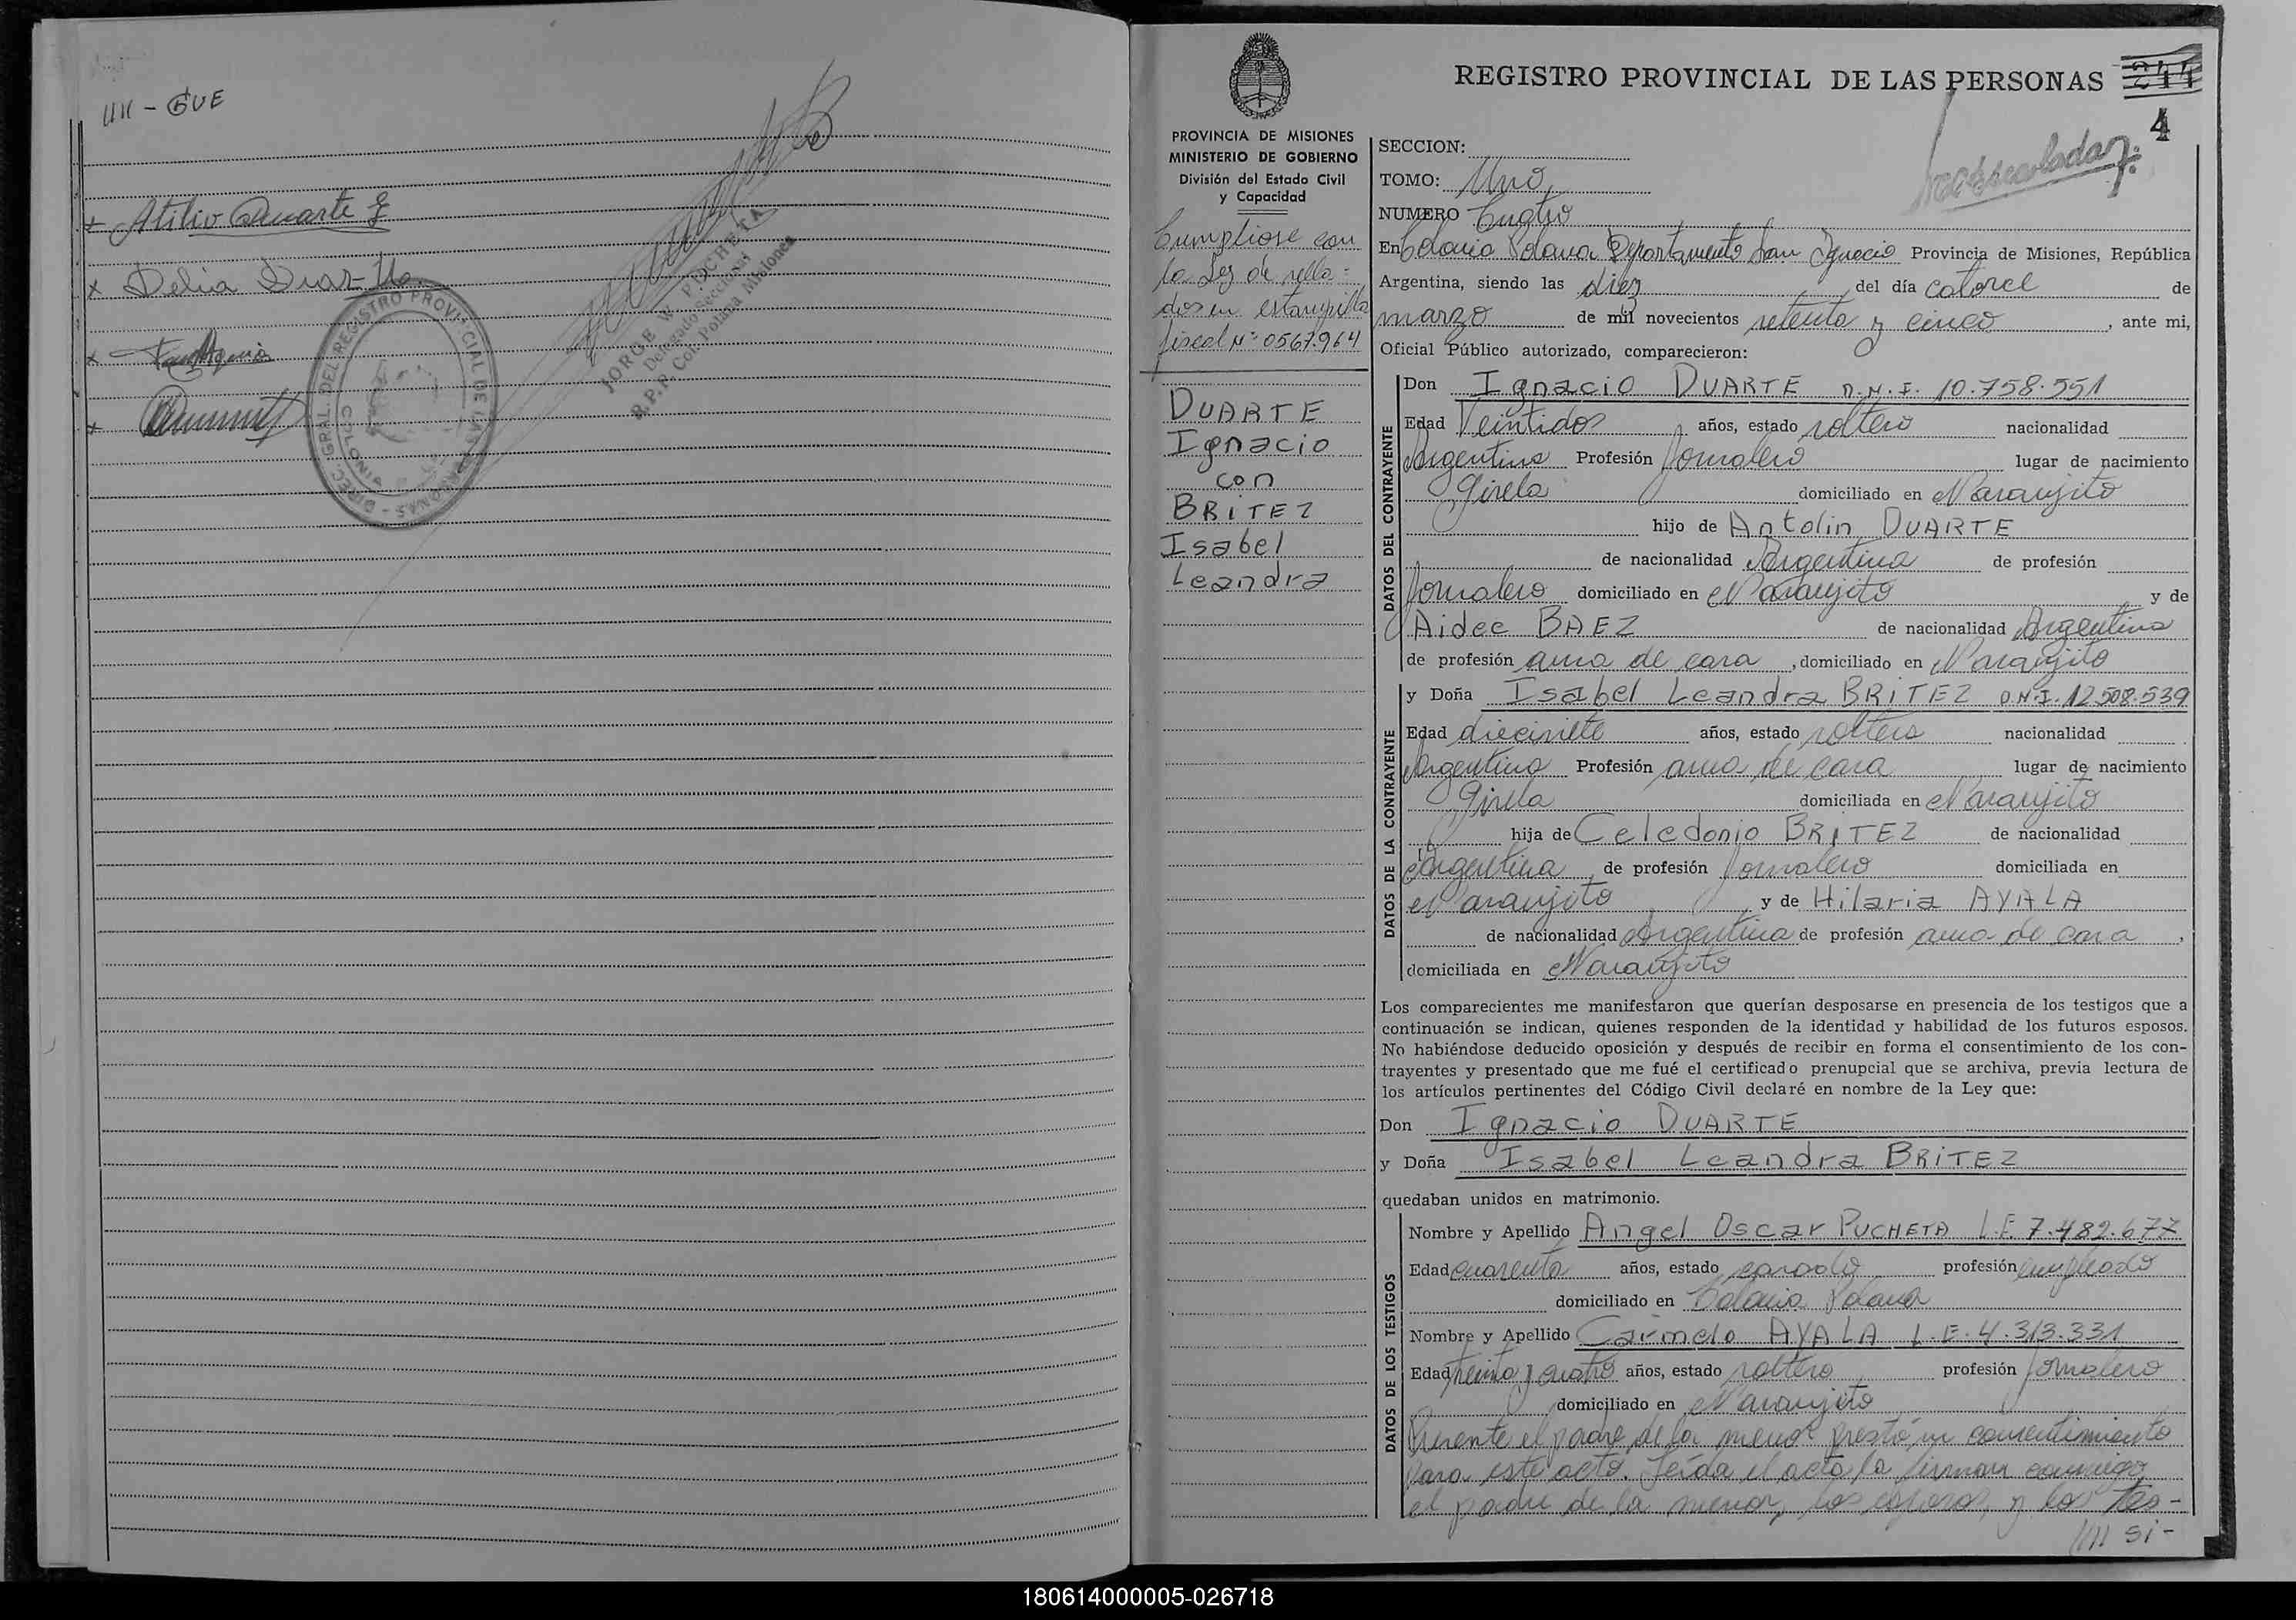 //// - GUE
x Atilio Duarte
x Delia Diaz
DIREC. GRAL. DEL REGISTRO PROVINCIAL DE LAS PERSONAS
COLONIA
JORGE W. PUCHETA
Delegado Seccional
R.P.P. Col. Polana Misiones
REGISTRO PROVINCIAL DE LAS PERSONAS 244
4
PROVINCIA DE MISIONES
MINISTERIO DE GOBIERNO
División del Estado Civil
y Capacidad
Cumpliose con
la Ley de sella-
dos en estampilla
fiscal Nº 0567.964
DUARTE
Ignacio
con
BRITEZ
Isabel
Leandra
SECCION:
TOMO: Uno,
NUMERO Cuatro
En Colonia Polana Departamento San Ignacio Provincia de Misiones, República
Argentina, siendo las diez del día catorce de
marzo de mil novecientos setenta y cinco, ante mi,
Oficial Público autorizado, comparecieron:
DATOS DEL CONTRAYENTE
Don Ignacio DUARTE D.N.I. 10.758.551
Edad Veintidos años, estado soltero nacionalidad
Argentina Profesión Jornalero lugar de nacimiento
domiciliado en Naranjito
hijo de Antolin DUARTE
de nacionalidad Argentina de profesión
Jornalero domiciliado en Naranjito y de
Aidee BAEZ de nacionalidad Argentina
de profesión ama de casa, domiciliado en Naranjito
DATOS DE LA CONTRAYENTE
y Doña Isabel Leandra BRITEZ D.N.I. 12.508.539
Edad diecisiete años, estado soltera nacionalidad
Argentina Profesión ama de casa lugar de nacimiento
domiciliada en Naranjito
hija de Celedonio BRITEZ de nacionalidad
Argentina, de profesión Jornalero domiciliada en
Naranjito y de Hilaria AYALA
de nacionalidad Argentina de profesión ama de casa,
domiciliada en Naranjito
Los comparecientes me manifestaron que querían desposarse en presencia de los testigos que a
continuación se indican, quienes responden de la identidad y habilidad de los futuros esposos.
No habiéndose deducido oposición y después de recibir en forma el consentimiento de los con-
trayentes y presentado que me fué el certificado prenupcial que se archiva, previa lectura de
los artículos pertinentes del Código Civil declaré en nombre de la Ley que:
Don Ignacio DUARTE
y Doña Isabel Leandra BRITEZ
quedaban unidos en matrimonio.
DATOS DE LOS TESTIGOS
Nombre y Apellido Angel Oscar PUCHETA L.E. 7.482.677
Edad cuarenta años, estado casado profesión empleado
domiciliado en Colonia Polana
Nombre y Apellido Carmelo AYALA L.E. 4.313.331
Edad treinta y cuatro años, estado soltero profesión Jornalero
domiciliado en Naranjito
Presente el padre de la menor prestó su consentimiento
para este acto. Leída el acta la firman conmigo
el padre de la menor, los esposos y los tes-
//// si-
180614000005-026718